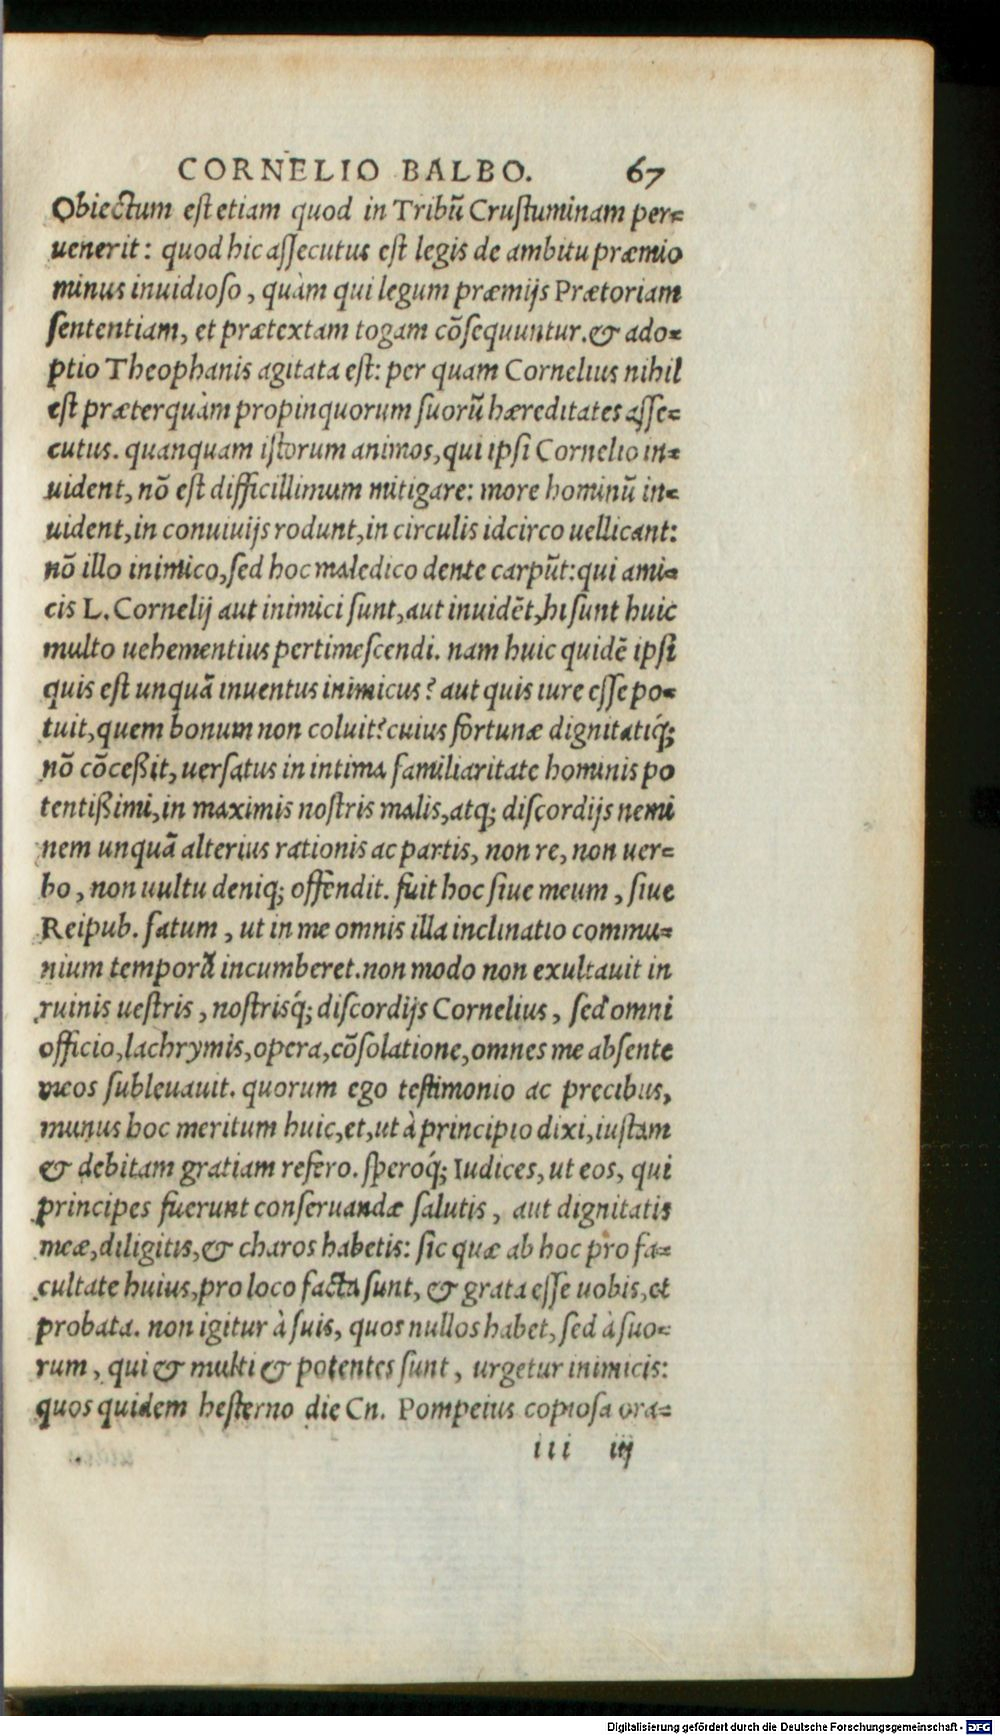 CORNELIO BALBO. 67
Obiectum est etiam quod in Tribū Crustuminam per=
uenerit: quod hic assecutus est legis de ambitu præmio
minus inuidioso, quàm qui legum præmijs Prætoriam
sententiam, et prætextam togam cōsequuntur. & ado=
ptio Theophanis agitata est: per quam Cornelius nihil
est præterquàm propinquorum suorū hæreditates asse=
cutus. quanquam istorum animos, qui ipsi Cornelio in=
uident, nō est difficillimum mitigare: more hominū in=
uident, in conuiuijs rodunt, in circulis idcirco uellicant:
nō illo inimico, sed hoc maledico dente carpūt: qui ami=
cis L. Cornelij aut inimici sunt, aut inuidēt, hi sunt huic
multo uehementius pertimescendi. nam huic quidē ipsi
quis est unquā inuentus inimicus? aut quis iure esse po=
tuit, quem bonum non coluit? cuius fortunæ dignitatiq́;
nō cōceßit, uersatus in intima familiaritate hominis po
tentißimi, in maximis nostris malis, atq; discordijs nemi
nem unquā alterius rationis ac partis, non re, non uer=
bo, non uultu deniq; offendit. fuit hoc siue meum, siue
Reipub. fatum, ut in me omnis illa inclinatio commu=
nium temporū incumberet. non modo non exultauit in
ruinis uestris, nostrisq́; discordijs Cornelius, sed omni
officio, lachrymis, opera, cōsolatione, omnes me absente
meos subleuauit. quorum ego testimonio ac precibus,
munus hoc meritum huic, et, ut à principio dixi, iustam
& debitam gratiam refero. speroq́; Iudices, ut eos, qui
principes fuerunt conseruandæ salutis, aut dignitatis
meæ, diligitis, & charos habetis: sic quæ ab hoc pro fa=
cultate huius, pro loco facta sunt, & grata esse uobis, et
probata. non igitur à suis, quos nullos habet, sed à suo=
rum, qui & multi & potentes sunt, urgetur inimicis:
quos quidem hesterno die Cn. Pompeius copiosa ora=
iii iij
Digitalisierung gefördert durch die Deutsche Forschungsgemeinschaft - DFG